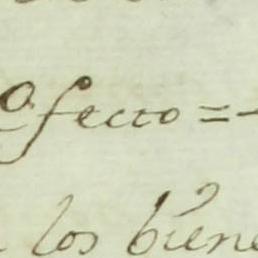 fecto =
los biene